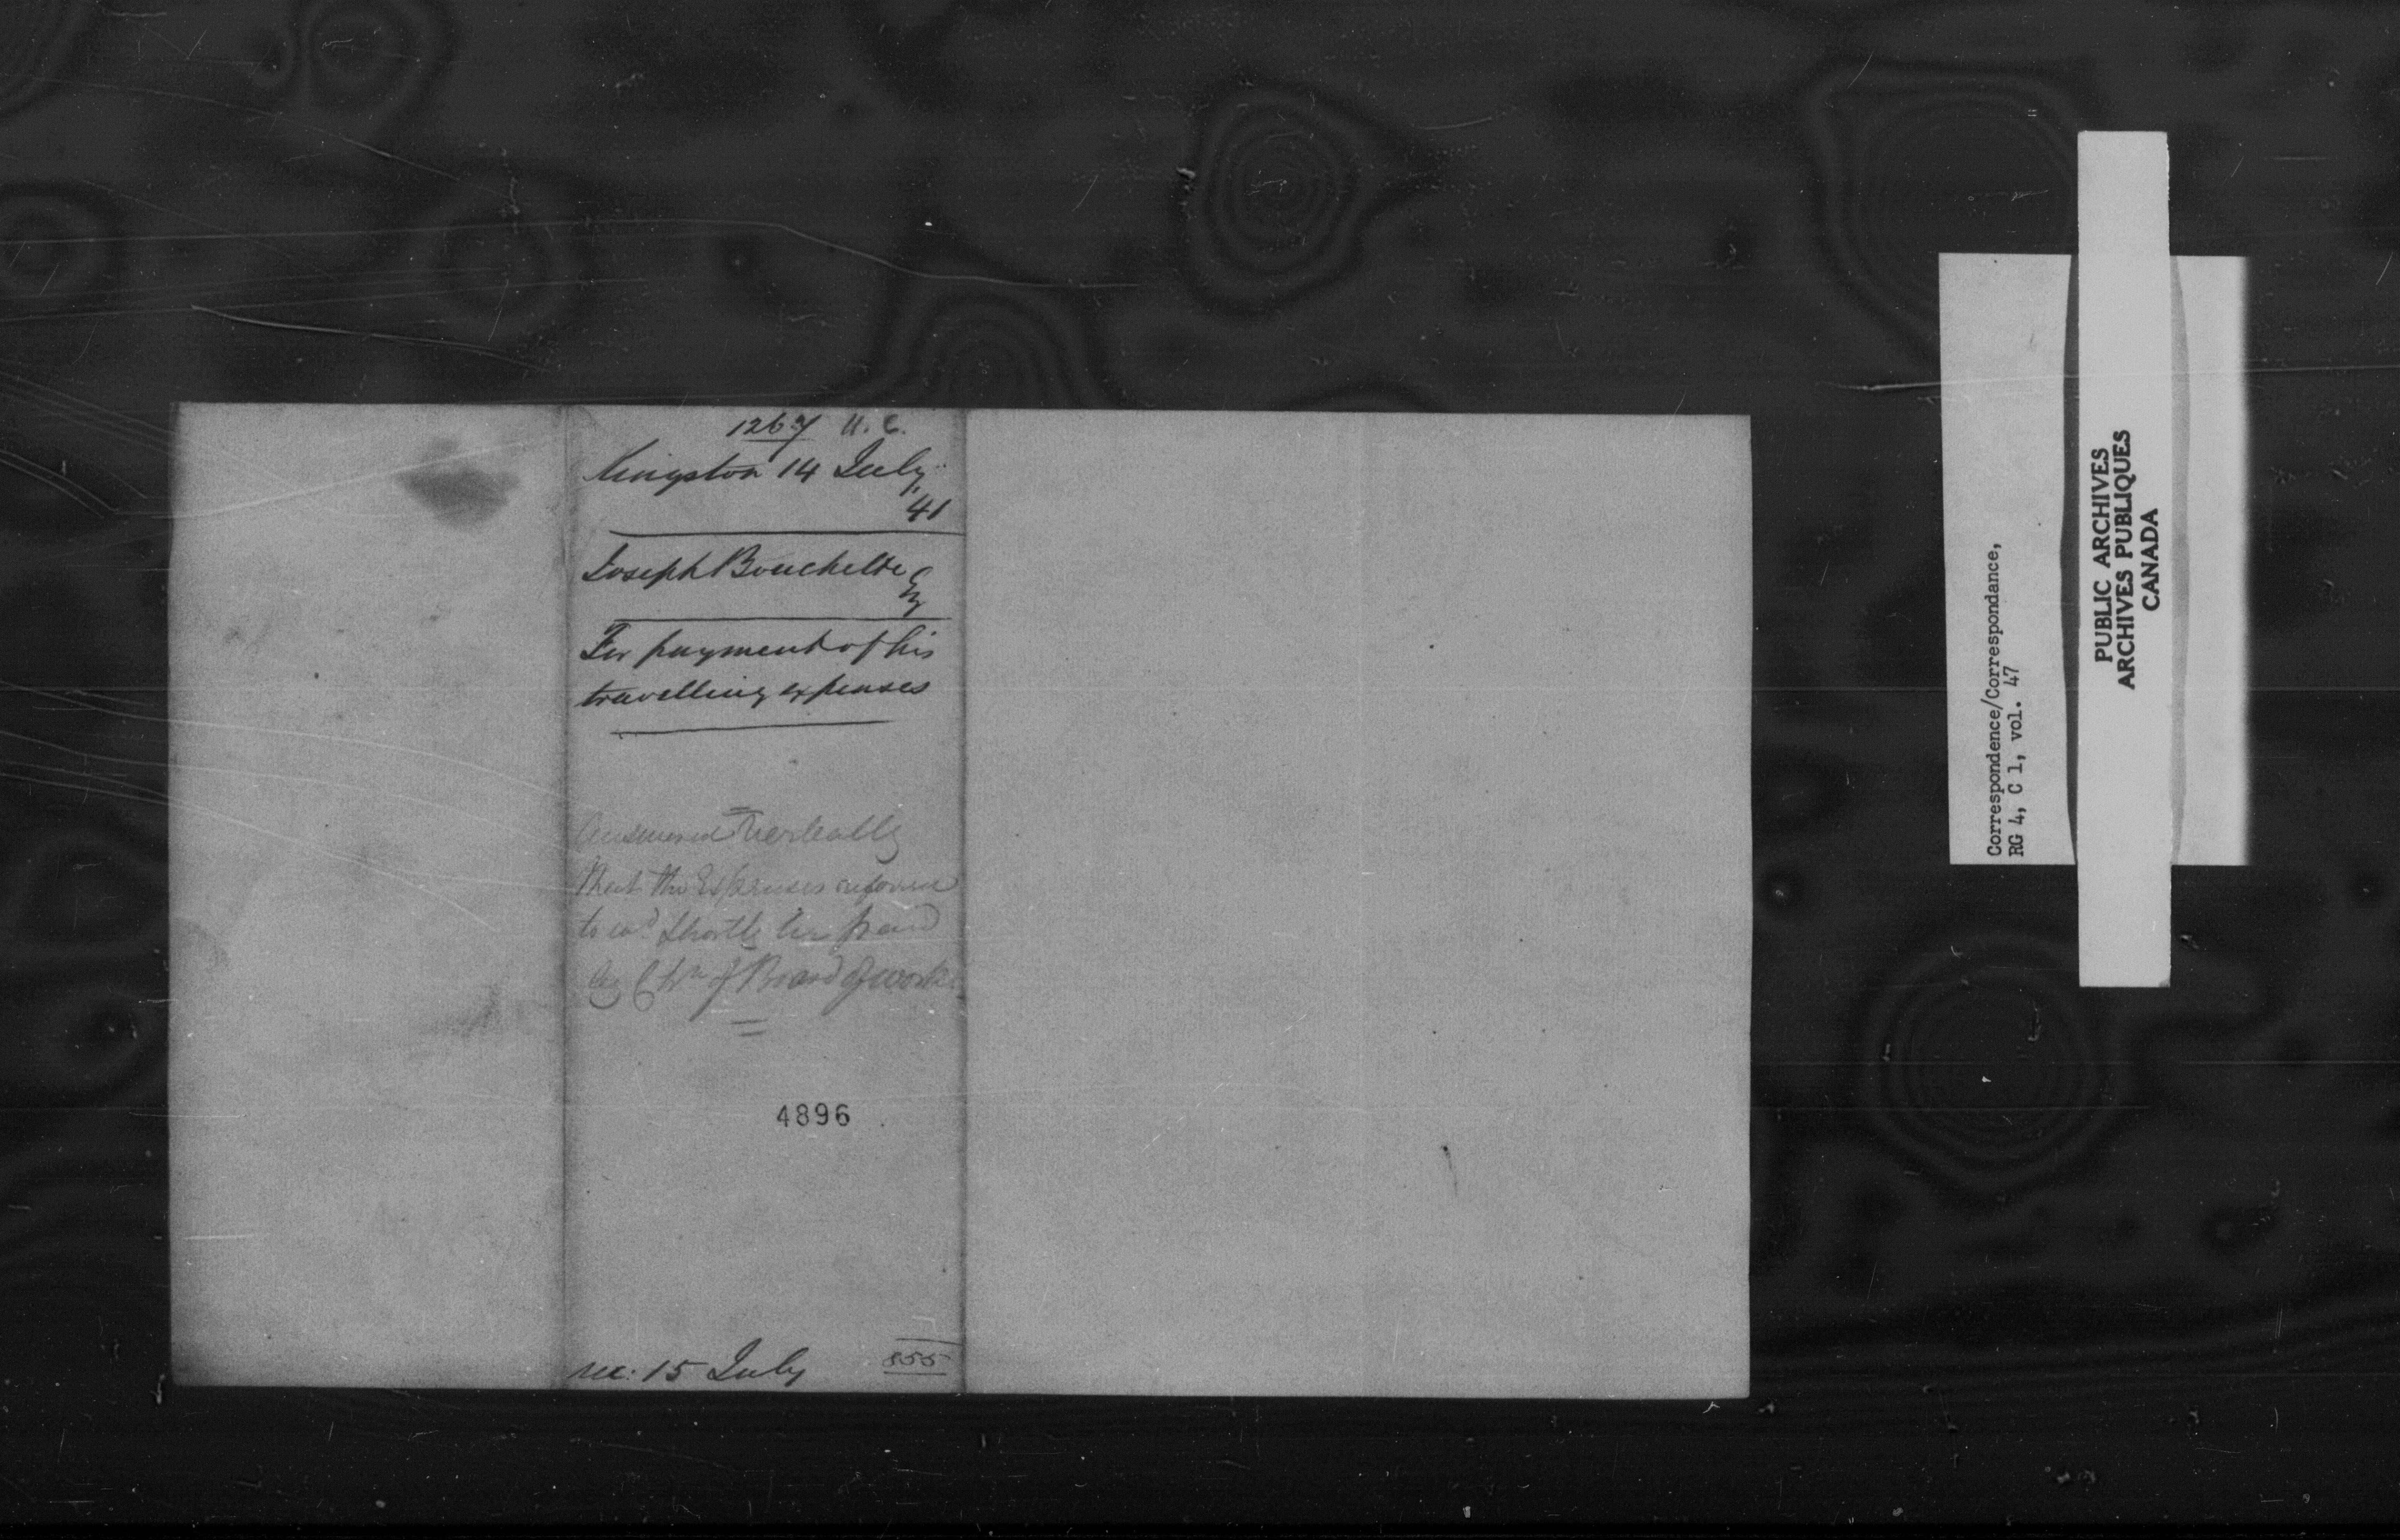 1267 U. C.
Kingston 14 July
'41
Joseph Bouchette
Esq
For payment of his
travelling expenses
Answered verbally
that the Expenses referred
to wd shortly be paid
by Chn of Board of works
4896
rec. 15 July
855
Correspondence/Correspondance,
RG 4, C 1, vol. 47
PUBLIC ARCHIVES
ARCHIVES PUBLIQUES
CANADA